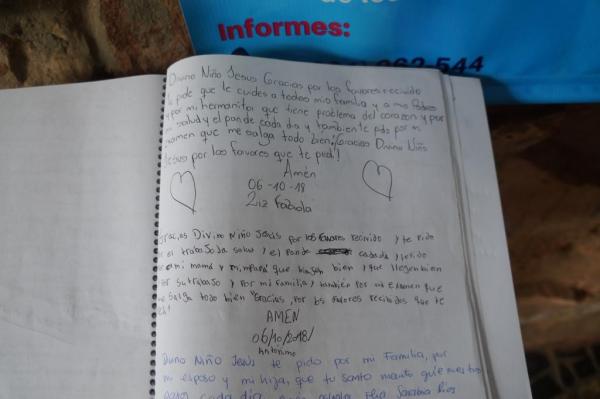 de los
Informes:
962-544
Divino Niño Jesus Gracias por los favores recivido
te pide que le cuides a todeo mio familia y a mis Padres
y por mi hermanito que tiene problema del corazon y por
mi salud y el pan de cada dia y tambien te pido por mi
examen que me salga todo bien Gracias Divino Niño
Jesus por los favores que te pedi!
Amén
06-10-18
Liz Fabiola
Gracias Divino Niño Jesús por los favores recivido y te pido
por el trabajo da salud y el pan de cada dia y te pido
por mi mamá y mi papá que hagan bien y que llegen bien
por su trabaso y por mi familia y también por mi Examen que
me salga todo bien Gracias, por los favores recibidos que te
AMEN
06/10/2018/
Antonimo
Divino Niño Jesús te pido por mi Familia, por
mi esposo y mi hija, que tu santo manto guíe nuestros
pasos cada día